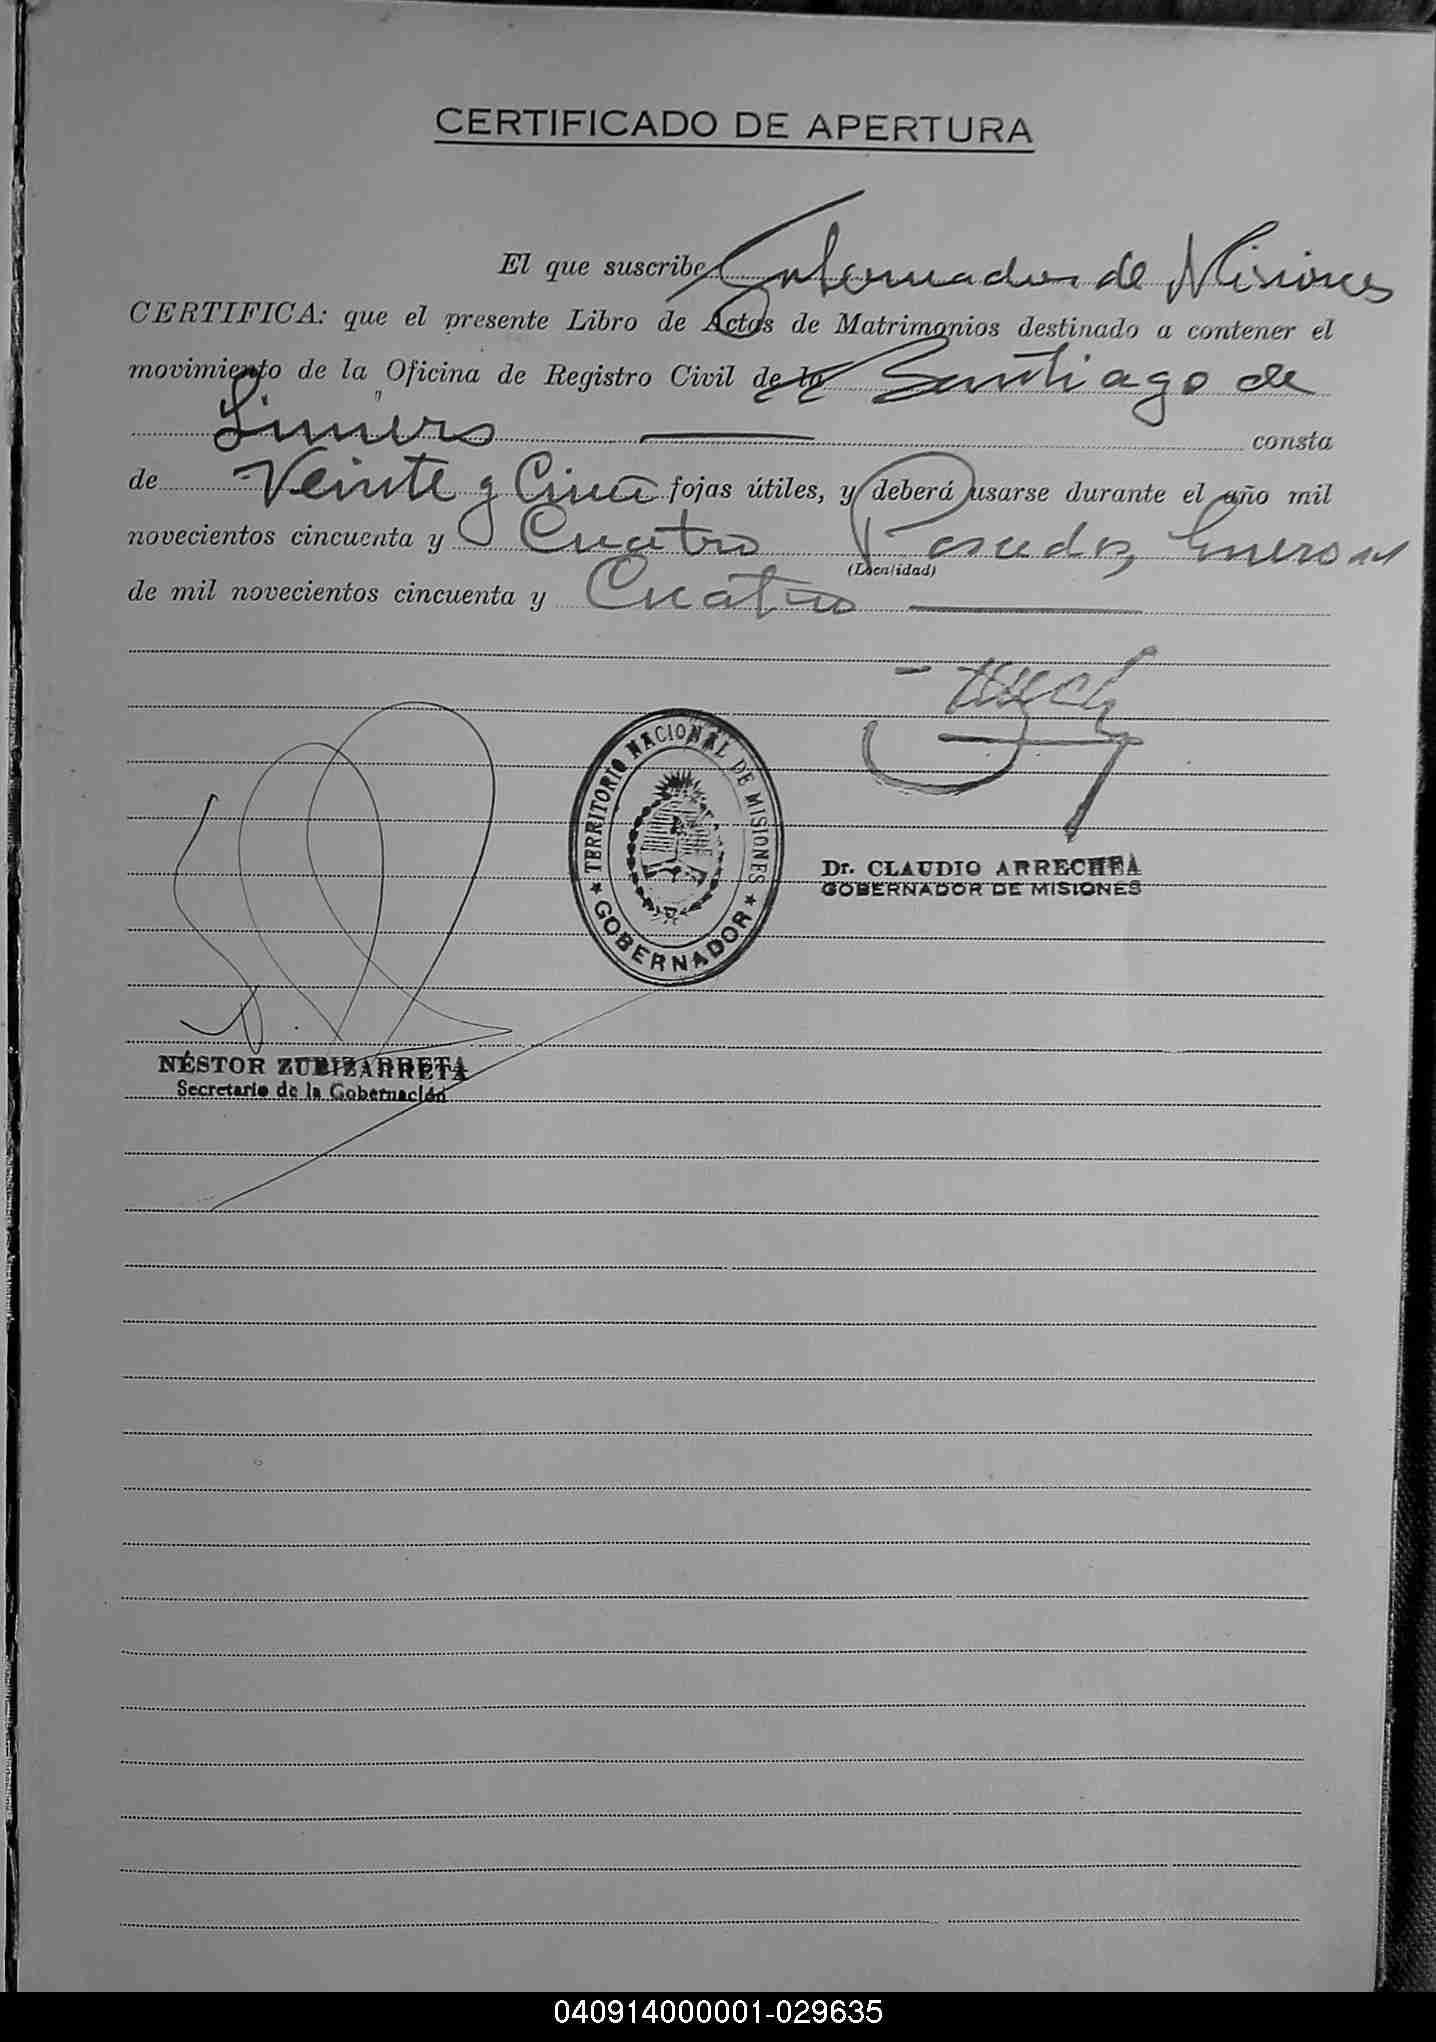 CERTIFICADO DE APERTURA
El que suscribe Gobernador de Misiones
CERTIFICA: que el presente Libro de Actas de Matrimonios destinado a contener el
movimiento de la Oficina de Registro Civil de la Santiago de
Liniers consta
de Veinte y Cinco fojas útiles, y deberá usarse durante el año mil
novecientos cincuenta y Cuatro Posadas, Enero
(Localidad)
de mil novecientos cincuenta y Cuatro
TERRITORIO NACIONAL DE MISIONES
GOBERNADOR
Dr. CLAUDIO ARRECHEA
GOBERNADOR DE MISIONES
NÉSTOR ZUBIZARRETA
Secretario de la Gobernación
040914000001-029635